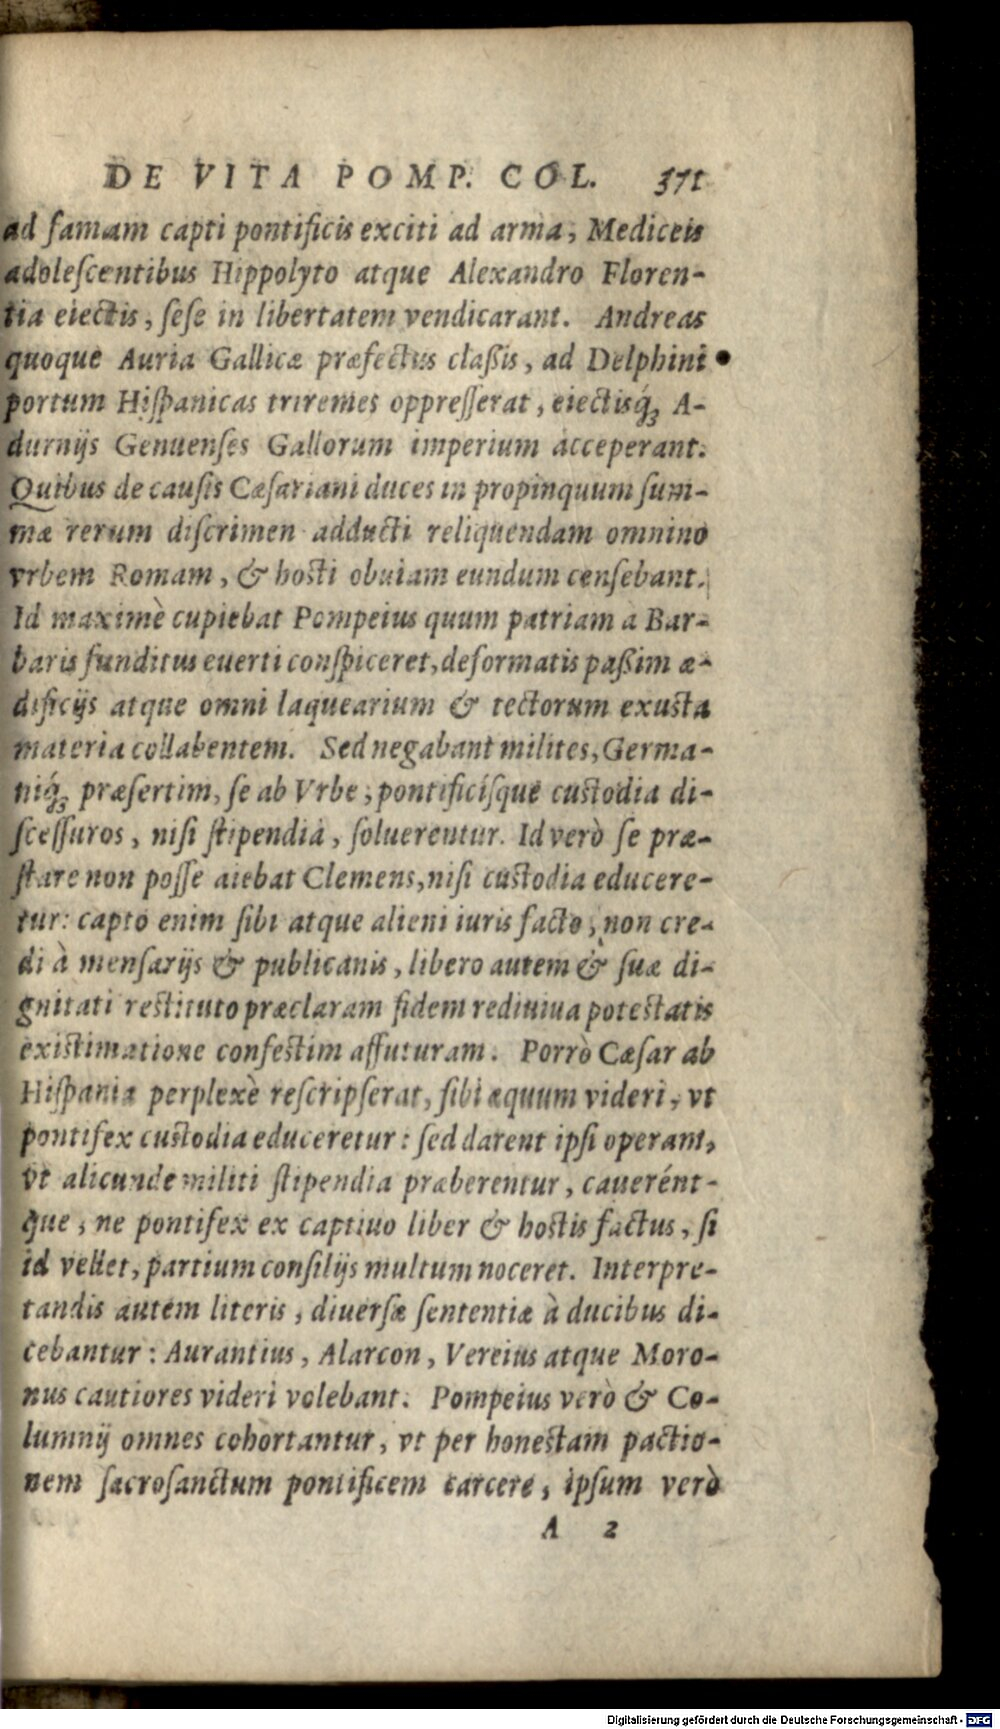 DE VITA POMP. COL. 371
ad famam capti pontificis exciti ad arma, Mediceis
adoleſcentibus Hippolyto atque Alexandro Floren-
tia eiectis, ſeſe in libertatem vendicarant. Andreas
quoque Auria Gallicæ præfectus claßis, ad Delphini
portum Hiſpanicas triremes oppreſſerat, eiectisq́ꝫ A-
durnijs Genuenſes Gallorum imperium acceperant.
Quibus de cauſis Cæſariani duces in propinquum ſum-
mæ rerum diſcrimen adducti reliquendam omnino
vrbem Romam, & hosti obuiam eundum cenſebant.
Id maximè cupiebat Pompeius quum patriam a Bar-
baris funditus euerti conſpiceret, deformatis paßim æ-
dificijs atque omni laquearium & tectorum exusta
materia collabentem. Sed negabant milites, Germa-
niq́ꝫ præſertim, ſe ab Vrbe, pontificíſque custodia di-
ſceſſuros, niſi ſtipendia, ſoluerentur. Id verò ſe præ-
ſtare non poſſe aiebat Clemens, niſi custodia educere-
tur: capto enim ſibi atque alieni iuris facto, non cre-
di à menſarijs & publicanis, libero autem & ſuæ di-
gnitati restituto præclaram fidem rediuiua potestatis
existimatione confestim affuturam. Porrò Cæſar ab
Hiſpania perplexè reſcripſerat, ſibi æquum videri, vt
pontifex custodia educeretur: ſed darent ipſi operam,
vt alicunde militi ſtipendia præberentur, cauerént-
que, ne pontifex ex captiuo liber & hostis factus, ſi
id vellet, partium conſilijs multum noceret. Interpre-
tandis autem literis, diuerſæ ſententiæ à ducibus di-
cebantur: Aurantius, Alarcon, Vereius atque Moro-
nus cautiores videri volebant. Pompeius verò & Co-
lumnij omnes cohortantur, vt per honestam pactio-
nem ſacroſanctum pontificem carcere, ipſum verò
A 2
Digitalisierung gefördert durch die Deutsche Forschungsgemeinschaft - DFG